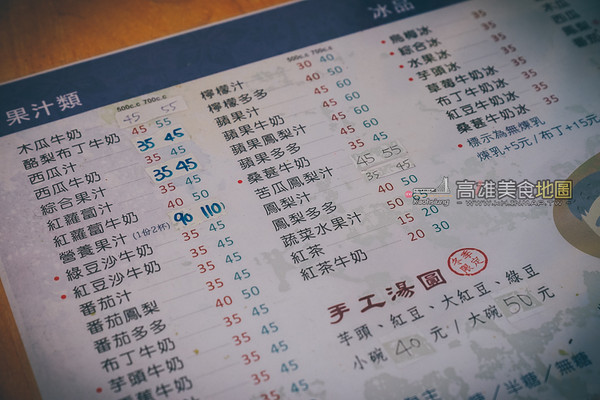 果汁類 500c.c 700c.c
木瓜牛奶 45 55
酪梨布丁牛奶 45 55
西瓜汁 35 45
西瓜牛奶 35 45
綜合果汁 35 45
紅蘿蔔汁 35 45
紅蘿蔔牛奶 40 50
營養果汁(1份2杯) 90 110
•綠豆沙牛奶 35 45
•紅豆沙牛奶 35 45
番茄汁 35 45
番茄鳳梨 35 45
番茄多多 40 50
布丁牛奶 35 45
•芋頭牛奶 35 45
500c.c 700c.c
檸檬汁 30 40
檸檬多多 40 50
蘋果汁 35 45
蘋果牛奶 45 60
蘋果鳳梨汁 45 60
蘋果多多 45 60
•桑葚牛奶 45 60
苦瓜鳳梨汁 45 55
鳳梨汁 35 45
鳳梨多多 40 50
蔬菜水果汁 35 45
紅茶 15 20
紅茶牛奶 20 30
冰品
•烏梅冰 35
•綜合冰
•水果冰
•芋頭冰
草莓牛奶冰
布丁牛奶冰
紅豆牛奶冰
桑葚牛奶冰
•標示為無煉乳
煉乳+5元/布丁+15元
手工湯圓
芋頭、紅豆、大紅豆、綠豆
小碗40元/大碗50元
/半糖/無糖
高雄美食地圖